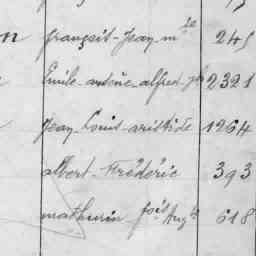 françois-Jean-m ie 245
Emile-antoine-alfred-jh 2321
Jean-Louis-aristide 1264
albert-Frédéric 393
mathurin fois Augte 618